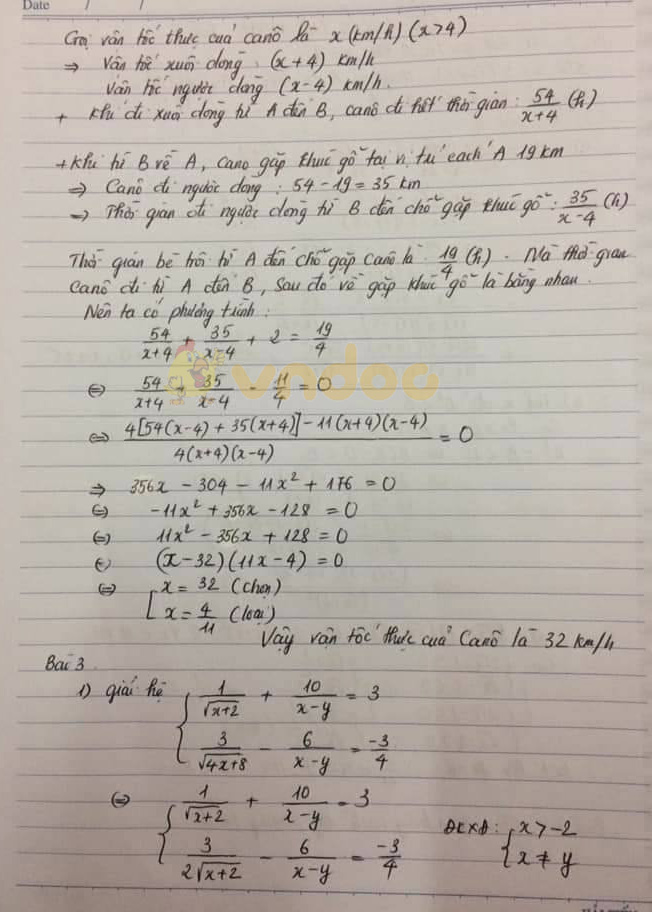 Date / /
Gọi vân tốc thực cuả canô là x (km/h) (x>4)
⇒ Vân tốc xuôi dòng: (x+4) km/h
Vân tốc ngược dòng (x-4) km/h.
+ Khi đi xuôi dòng từ A đến B, canô đi hết thời gian: 54/(x+4) (h)
+ Khi từ B về A, Cano gặp khúc gỗ tại vị trí cách A 19 km
⇒ Canô đi ngược dòng: 54 - 19 = 35 km
⇒ Thời gian đi ngược dòng từ B đến chỗ gặp khúc gỗ: 35/(x-4) (h)
Thời gian bè trôi từ A đến chỗ gặp canô là 19/4 (h). Mà thời gian
Canô đi từ A đến B, sau đó về gặp khúc gỗ là bằng nhau.
Nên ta có phương trình:
54/(x+4) + 35/(x-4) + 2 = 19/4
vndoc
⇔ 54/(x+4) + 35/(x-4) - 11/4 = 0
⇔ (4[54(x-4) + 35(x+4)] - 11(x+4)(x-4))/(4(x+4)(x-4)) = 0
⇒ 356x - 304 - 11x² + 176 = 0
⇔ -11x² + 356x - 128 = 0
⇔ 11x² - 356x + 128 = 0
⇔ (x-32)(11x-4) = 0
⇔ [ x = 32 (chọn)
x = 4/11 (loại)
Vậy vận tốc thực cuả Canô là 32 km/h
Bài 3
1) giải hệ { 1/√(x+2) + 10/(x-y) = 3
3/√(4x+8) - 6/(x-y) = -3/4
⇔ { 1/√(x+2) + 10/(x-y) = 3
3/(2√(x+2)) - 6/(x-y) = -3/4
ĐKXĐ: { x > -2
x ≠ y